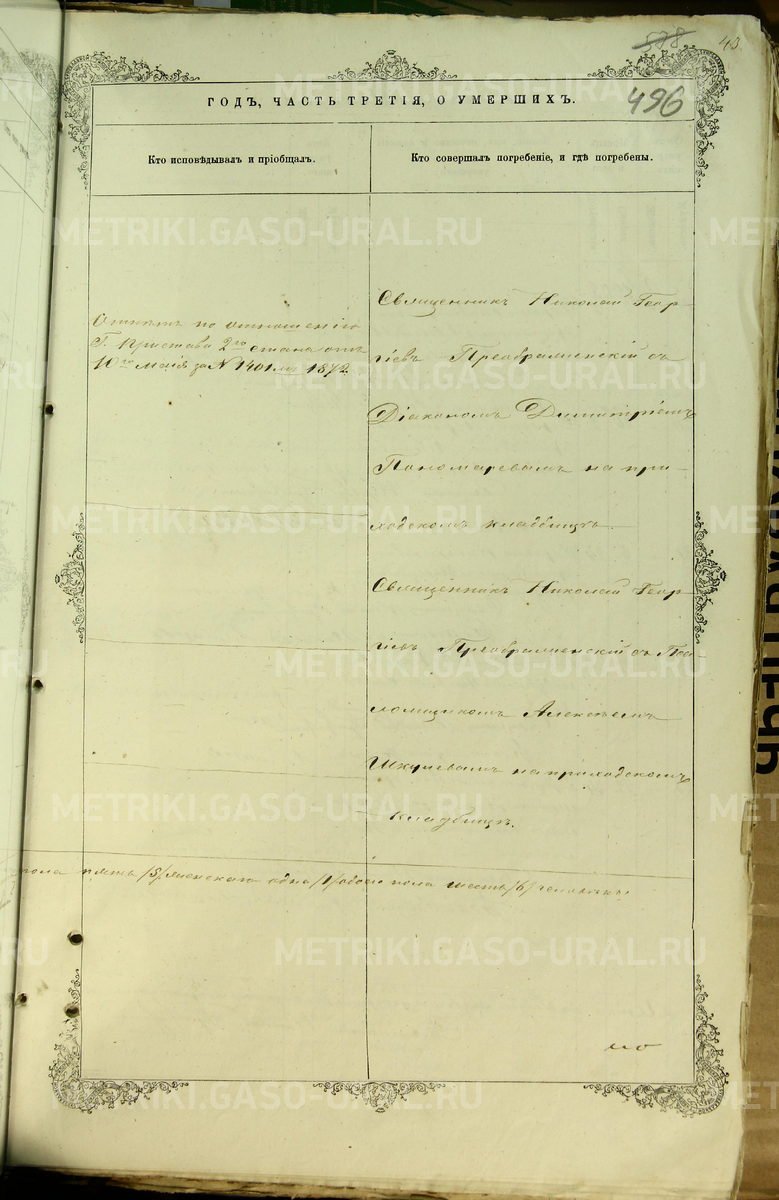 598
43.
496
ГОДЪ, ЧАСТЬ ТРЕТІЯ, О УМЕРШИХЪ.
Кто исповѣдывалъ и пріобщалъ.
Кто совершалъ погребеніе, и гдѣ погребены.
METRIKI.GASO-URAL.RU
по отношенію
Г. Пристава 2го стана отъ
10го Маія за № 1401 1872
Священникъ Николай Геор-
гіевъ Преображенскій съ
Діакономъ Димитріемъ
Пономаревымъ на при-
ходскомъ кладбищѣ.
Священникъ Николай Геор-
гіевъ Преображенскій съ Пса-
ломщикомъ Алексѣемъ
на приходскомъ
кладбищѣ.
пола пять /5/ женскаго одна /1/ обоего пола шесть /6/ человѣкъ